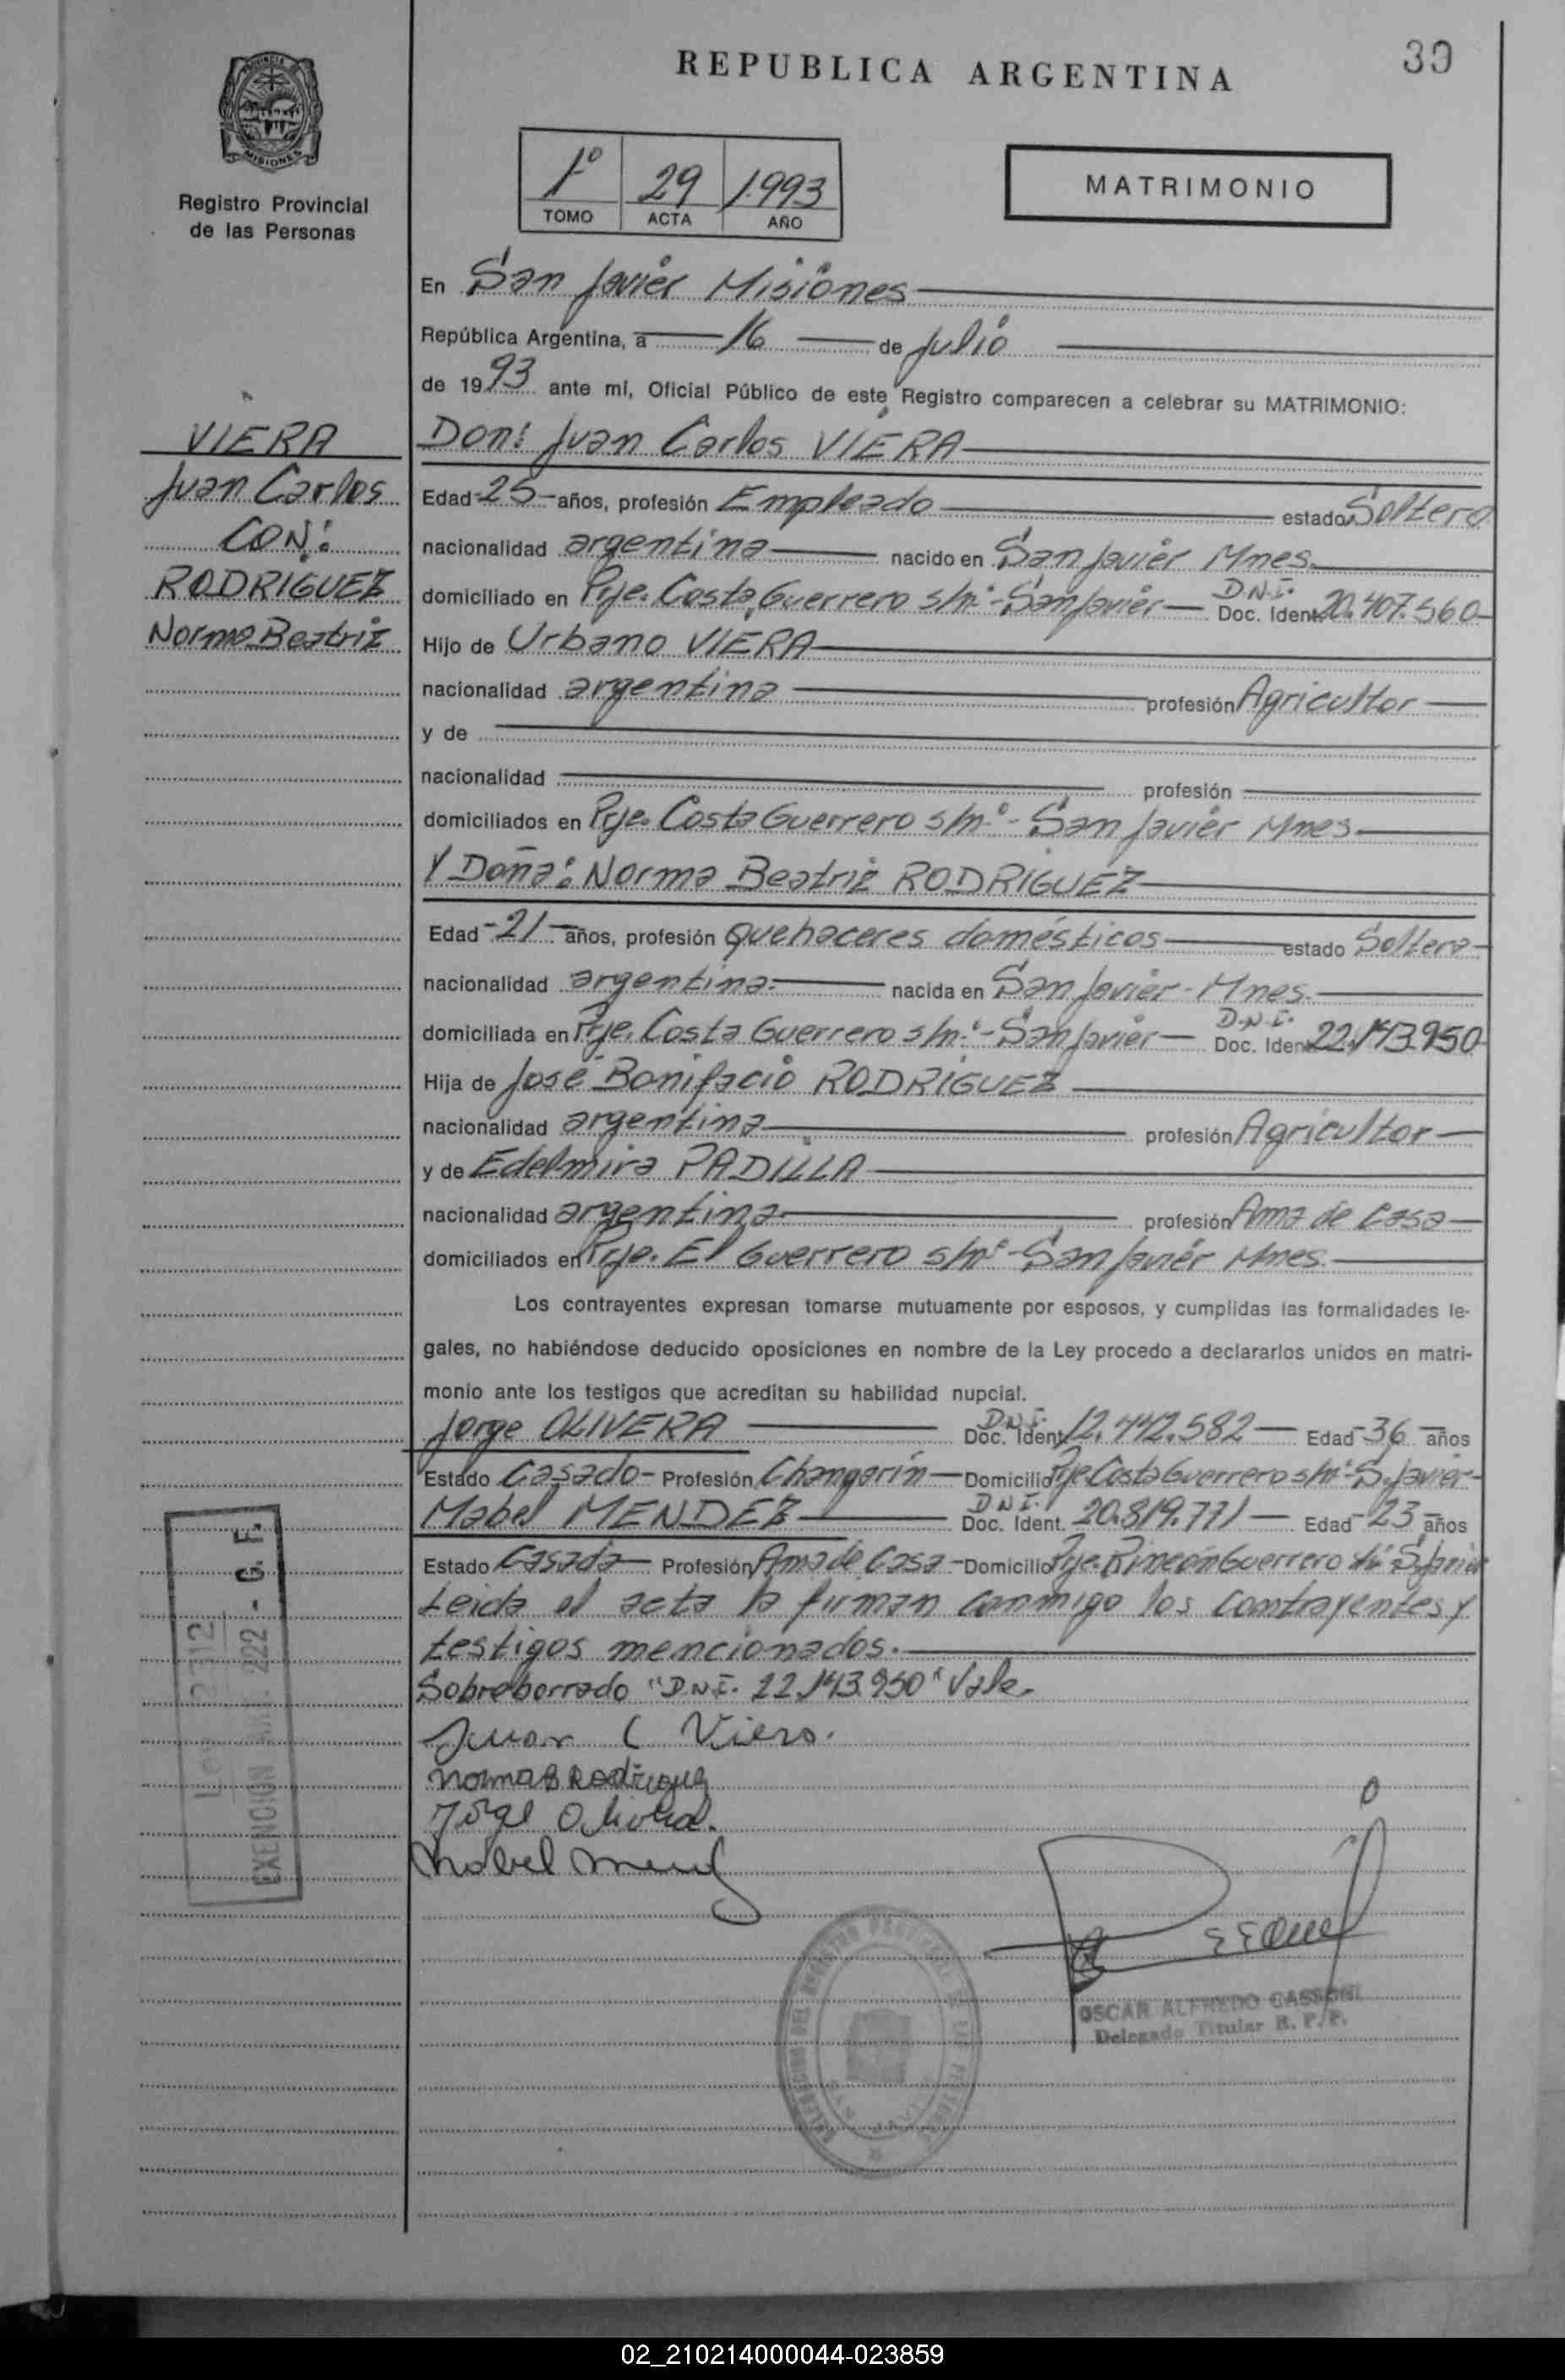 39
REPUBLICA ARGENTINA
PROVINCIA DE
MISIONES
Registro Provincial
de las Personas
1º 29 1.993
TOMO ACTA AÑO
MATRIMONIO
En San Javier Misiones
República Argentina, a 16 de Julio
de 1993 ante mi, Oficial Público de este Registro comparecen a celebrar su MATRIMONIO:
VIERA
Juan Carlos
CON:
RODRIGUEZ
Norma Beatriz
Don: Juan Carlos VIERA
Edad -25- años, profesión Empleado estado Soltero
nacionalidad argentina nacido en San Javier Mnes.
domiciliado en Pje. Costa Guerrero s/nº - San Javier D.N.I. Doc. Ident. 20.407.560
Hijo de Urbano VIERA
nacionalidad argentina profesión Agricultor
y de
nacionalidad profesión
domiciliados en Pje. Costa Guerrero s/nº - San Javier Mnes.
Y Doña: Norma Beatriz RODRIGUEZ
Edad -21- años, profesión quehaceres domésticos estado Soltera
nacionalidad argentina. nacida en San Javier - Mnes.
domiciliada en Pje. Costa Guerrero s/nº - San Javier D.N.I. Doc. Ident. 22.143.950
Hija de José Bonifacio RODRIGUEZ
nacionalidad argentina profesión Agricultor
y de Edelmira PADILLA
nacionalidad argentina profesión Ama de Casa
domiciliados en Pje. El Guerrero s/nº - San Javier Mnes.
Los contrayentes expresan tomarse mutuamente por esposos, y cumplidas las formalidades le-
gales, no habiéndose deducido oposiciones en nombre de la Ley procedo a declararlos unidos en matri-
monio ante los testigos que acreditan su habilidad nupcial.
Jorge OLIVERA D.N.I. Doc. Ident. 12.442.582 Edad -36- años
Estado Casado - Profesión Changarín - Domicilio Pje Costa Guerrero s/nº - S. Javier
Mabel MENDEZ D.N.I. Doc. Ident. 20.819.771 Edad -23 años
Estado Casada Profesión Ama de Casa - Domicilio Pje. Rincón Guerrero s/nº S. Javier
Leida el acta la firman conmigo los contrayentes y
testigos mencionados.
Sobreborrado "D.N.I. 22.143.950" Vale.
Juan C Viera.
Norma B Rodriguez
Jorge Olivera.
Mabel Mend
Ley 2712
EXENCION ART. 222 - G. F.
OSCAR ALFREDO CASSONI
Delegado Titular R. P./P.
02_210214000044-023859